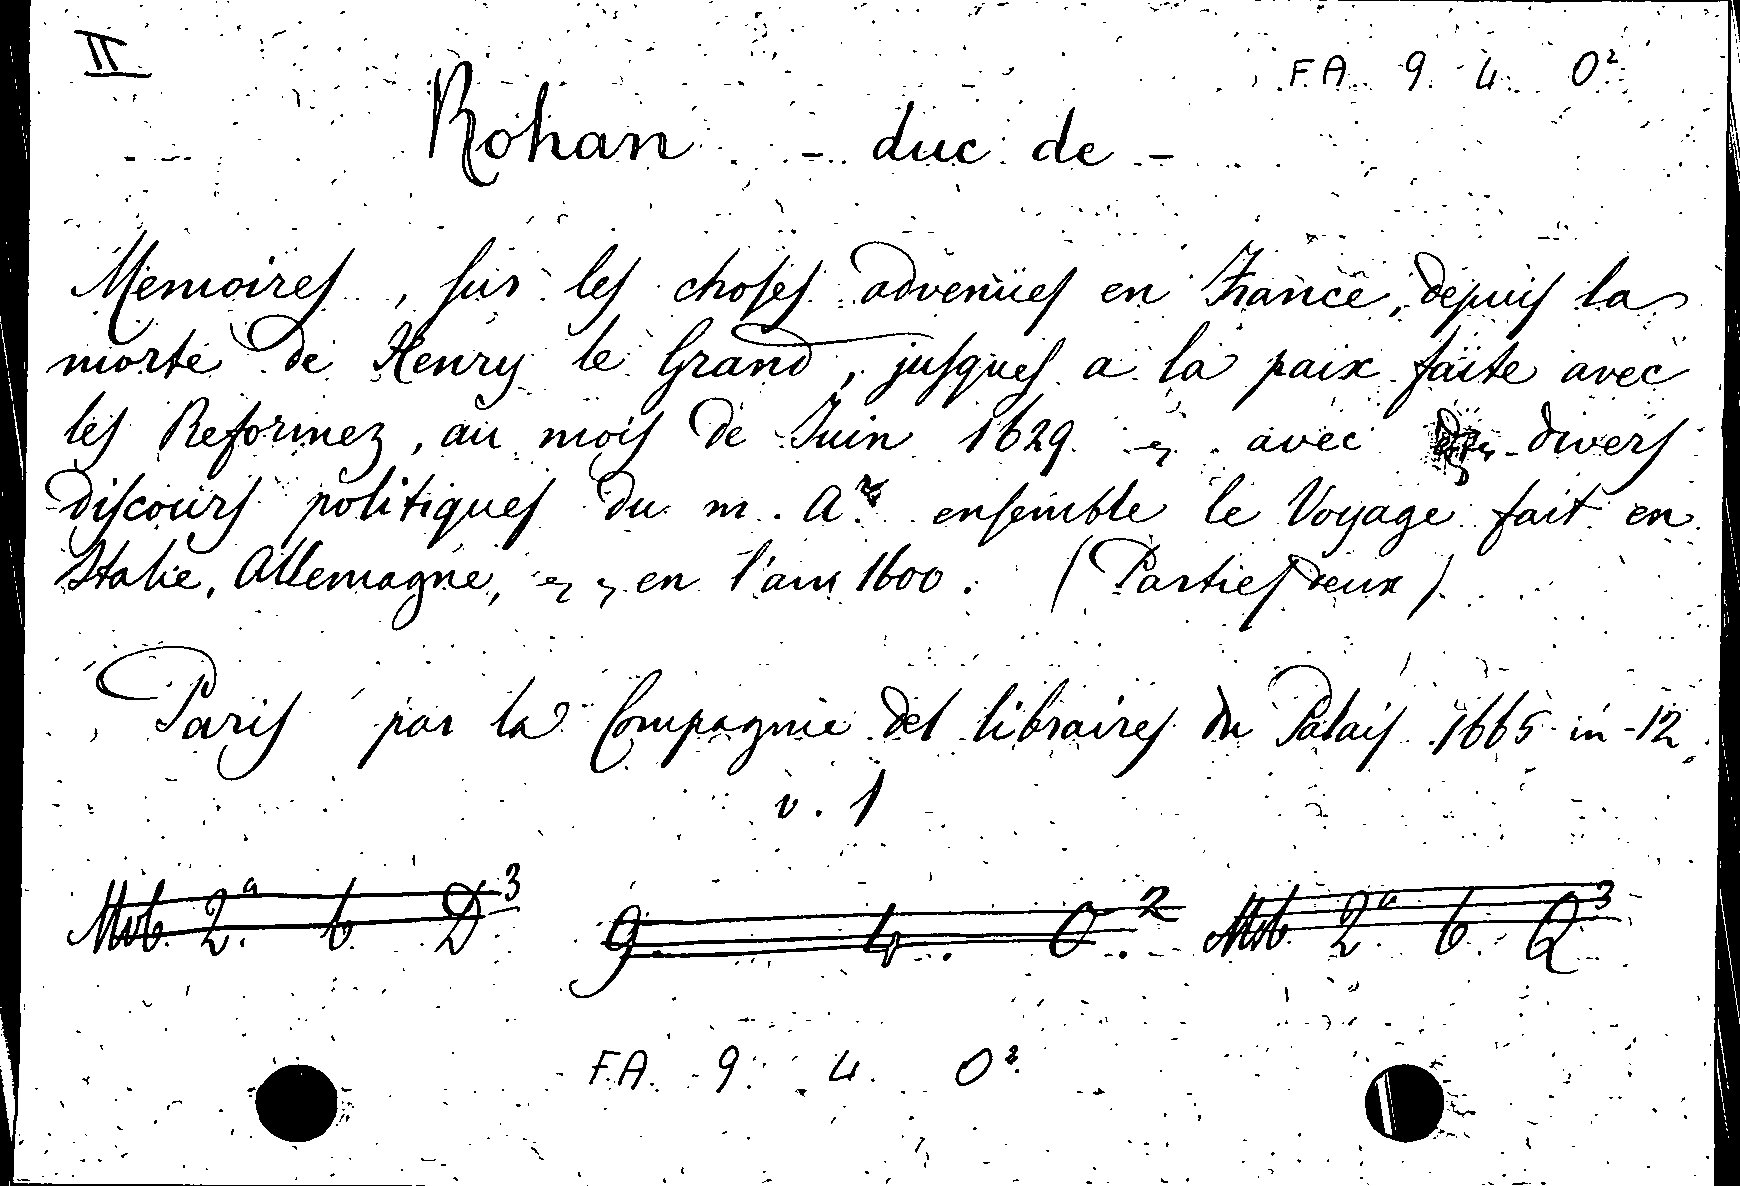 II
F.A. 9. 4. O²
Rohan - duc de -
Memoires, sur les choses advenües en France, depuis la
morte de Henry le Grand, jusques a la paix faite avec
les Reformez, au mois de Juin 1629. avec divers
discours politiques du m. Ar ensemble le Voyage fait en
Italie, Allemagne, en l'an 1600. (Parties deux)
Paris par la Compagnie des libraires du Palais 1665 in-12.
v. 1
Mob. 2.a 6 D3
9. 4. O.2
Mob. 2.a 6. Q3
F.A. 9. 4. O²